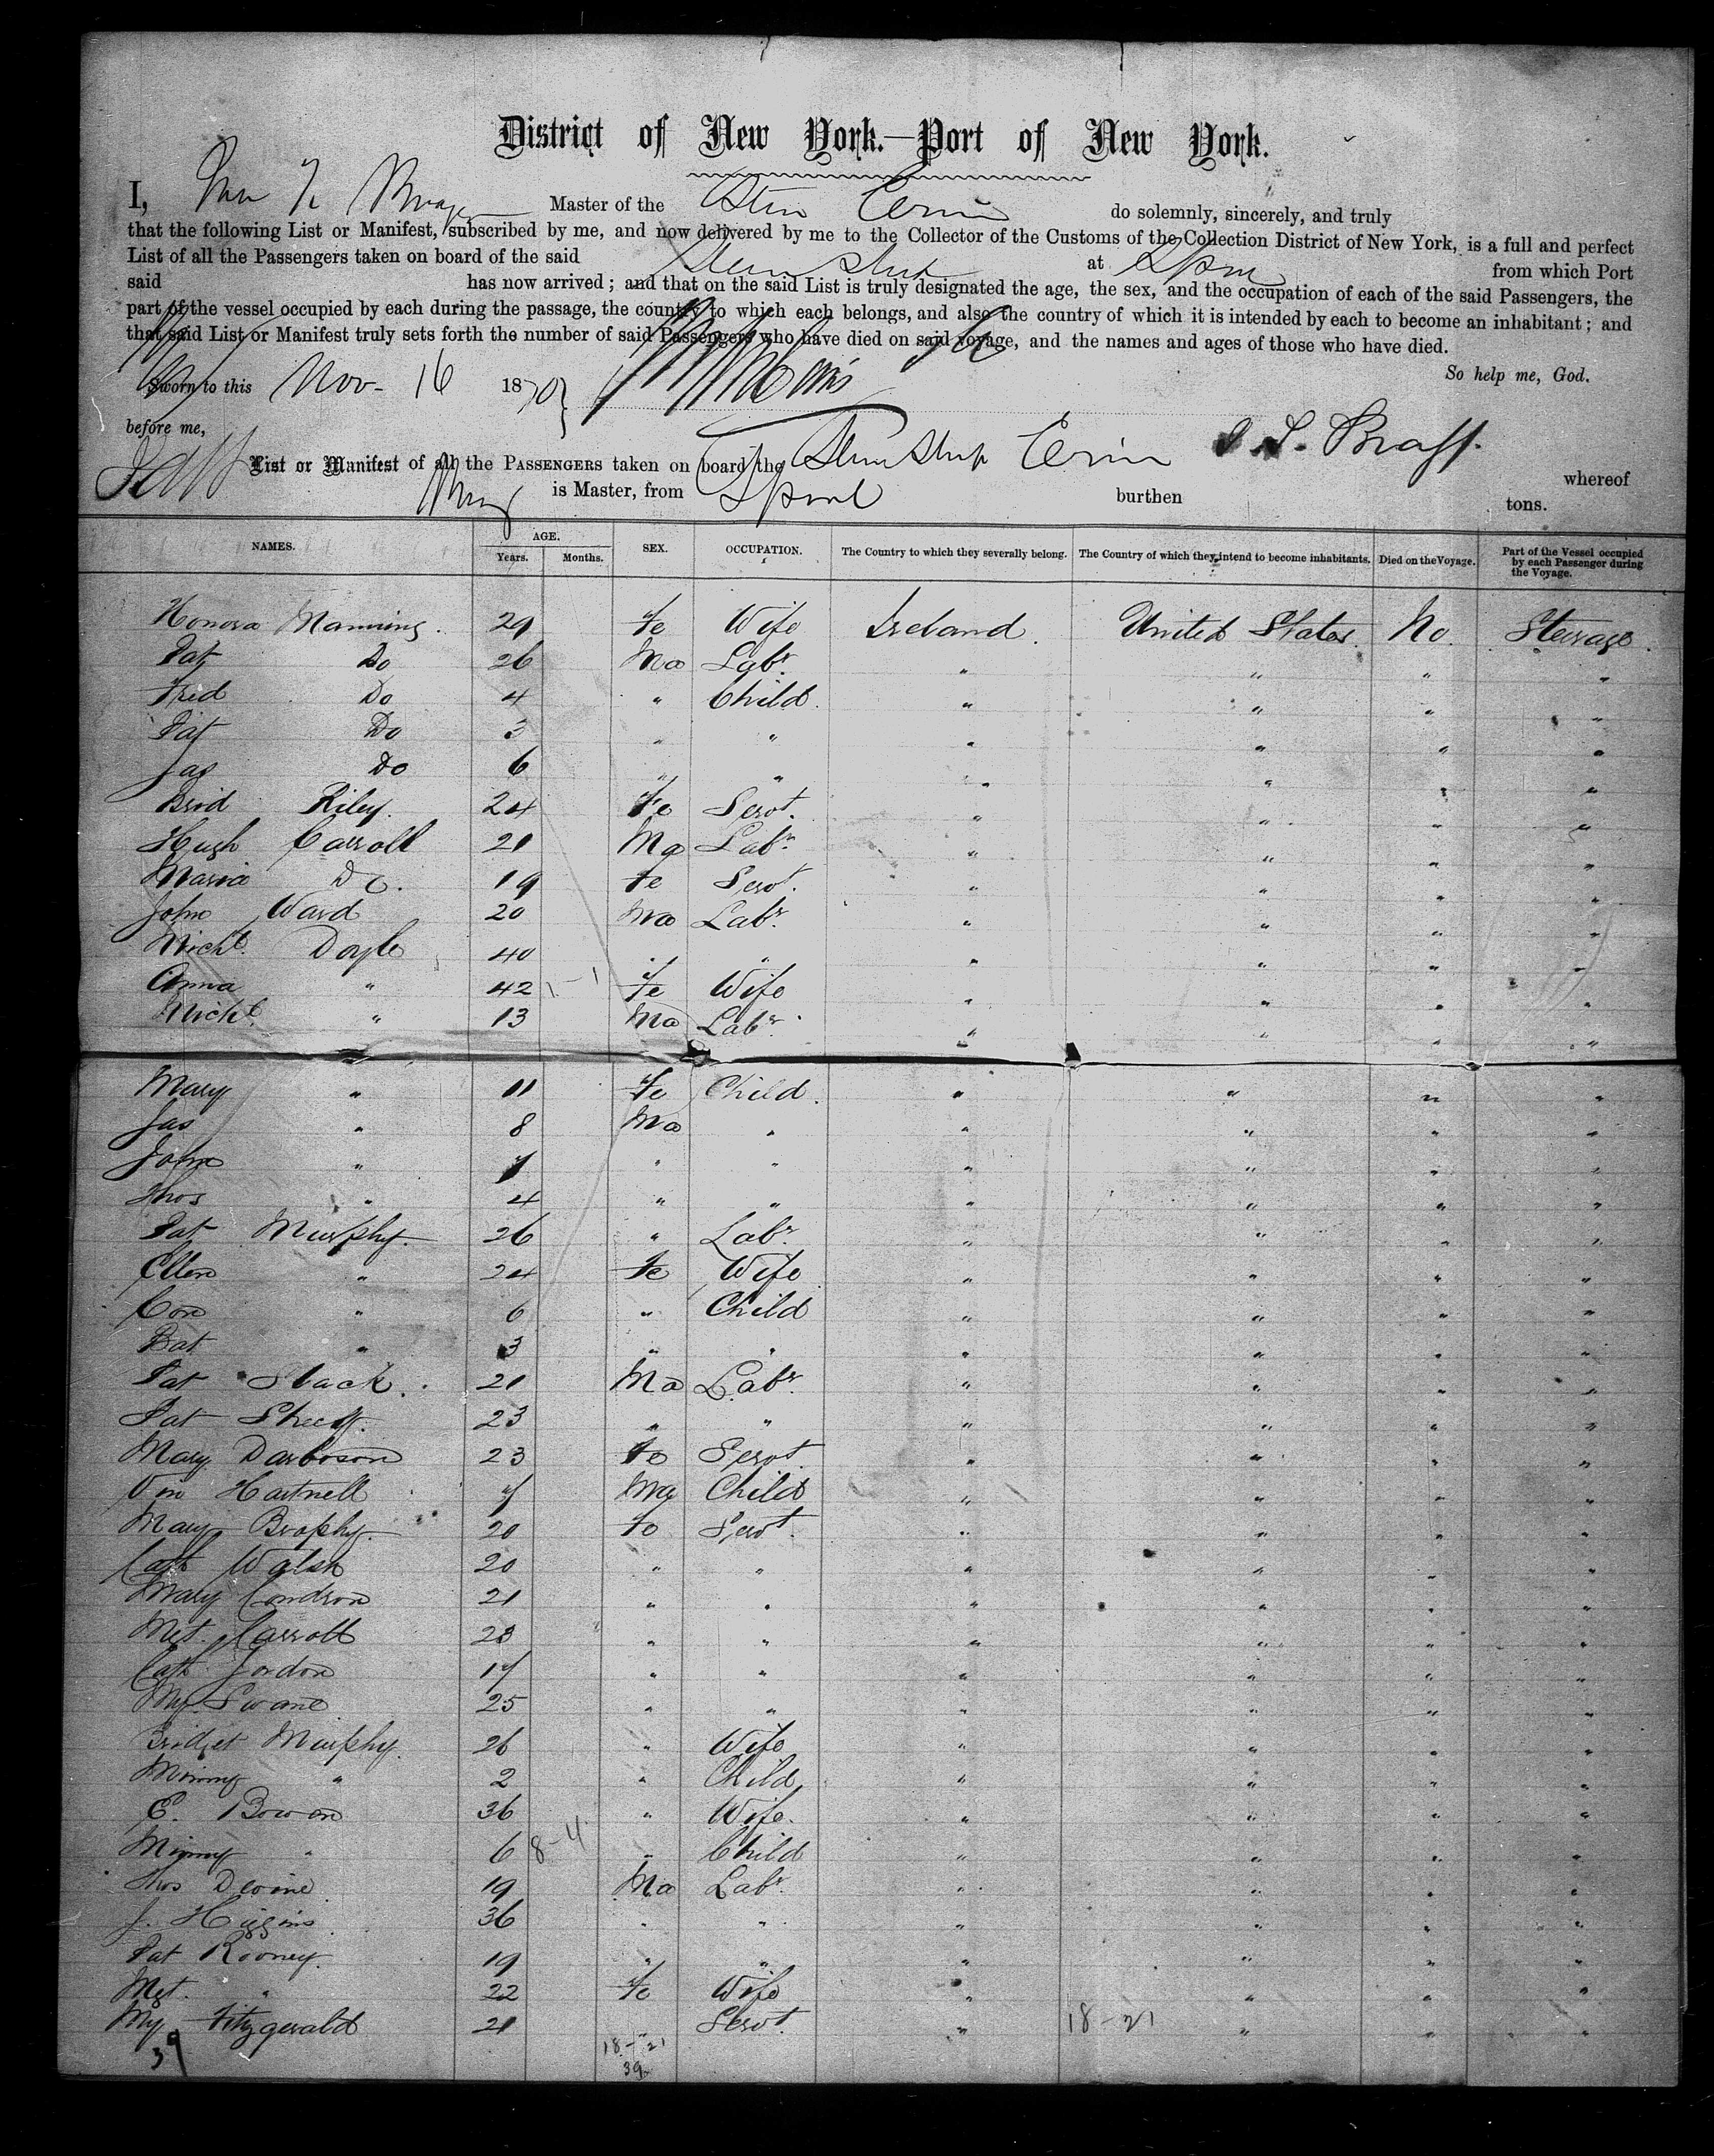 District of New York.—Port of New York.
I, Master of the Stm Erin do solemnly, sincerely, and truly
that the following List or Manifest, subscribed by me, and now delivered by me to the Collector of the Customs of the Collection District of New York, is a full and perfect
List of all the Passengers taken on board of the said Steam Ship at Lpool from which Port
said has now arrived; and that on the said List is truly designated the age, the sex, and the occupation of each of the said Passengers, the
part of the vessel occupied by each during the passage, the country to which each belongs, and also the country of which it is intended by each to become an inhabitant; and
that said List or Manifest truly sets forth the number of said Passengers who have died on said voyage, and the names and ages of those who have died.
So help me, God.
Sworn to this Nov- 16 1870
before me,
List or Manifest of all the PASSENGERS taken on board the Steam Ship Erin whereof
is Master, from Lpool burthen tons.
NAMES. AGE. Years. Months. SEX. OCCUPATION. The Country to which they severally belong. The Country of which they intend to become inhabitants. Died on the Voyage. Part of the Vessel occupied by each Passenger during the Voyage.
Honora Manning. 29 Fe Wife Ireland. United States No Steerage.
Pat Do 26 Ma Labr. " " " "
Fred Do 4 " Child. " " " "
Pat Do 3 " " " " " "
Jas Do 6 " " " " " "
Brid Riley. 24 Fe Servt. " " " "
Hugh Carroll 21 Ma Labr. " " " "
Maria Do. 19 Fe Servt. " " " "
John Ward 20 Ma Labr. " " " "
Michl. Doyle 40 " " " " " "
Anna " 42 Fe Wife " " " "
Michl. " 13 Ma Labr. " " " "
Mary " 11 Fe Child. " " " "
Jas " 8 Ma " " " " "
John " 7 " " " " " "
Thos " 4 " " " " " "
Pat Murphy. 26 " Labr. " " " "
Ellen " 24 Fe Wife " " " "
Con " 6 " Child " " " "
Bat " 3 " " " " " "
Pat Slack. 21 Ma Labr. " " " "
Pat Sheedy. 23 " " " " " "
Mary Darboson 23 Fe Servt. " " " "
Hartnell 7 Ma Child " " " "
Mary Brophy. 20 Fe Servt. " " " "
Cath Walsh 20 " " " " " "
Mary Condron 21 " " " " " "
Mgt. Carroll 23 " " " " " "
Cath Jordon 17 " " " " " "
My Swane 25 " " " " " "
Bridget Murphy. 26 " Wife " " " "
Minny " 2 " Child, " " " "
E. Bowan 36 " Wife. " " " "
Minny " 6 8-4 " Child " " " "
Thos Devine 19 Ma Labr. " " " "
J. Higgins 36 " " " " " "
Pat Rooney. 19 " " " " " "
Mgt. " 22 Fe Wife " " " "
My Fitzgerald 21 " Servt. " 18-21 " " "
39 18-21
39